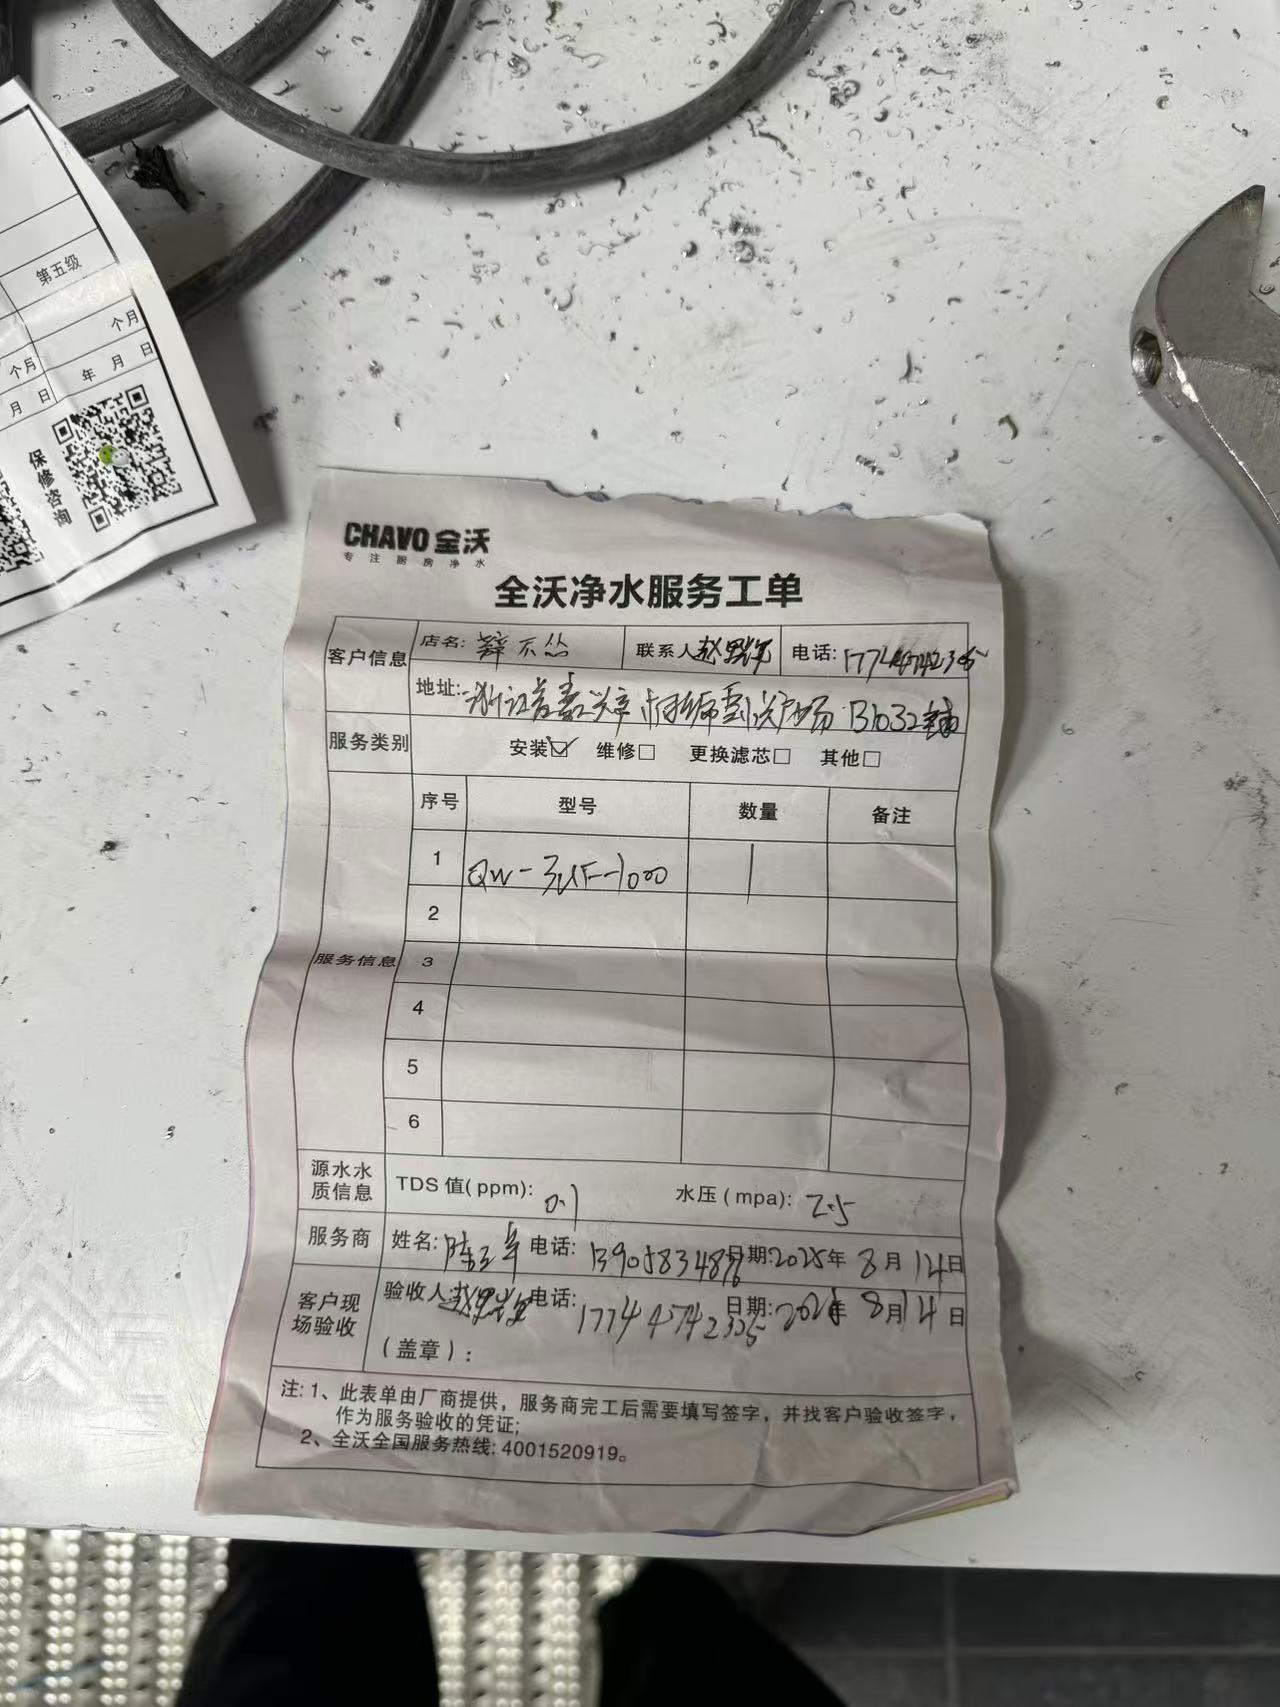 第五级
个月
个月
年 月 日
月 日
保修咨询
CHAVO 全沃
专注厨房净水
全沃净水服务工单
客户信息
店名: 薛不怂
联系人
电话:
地址: 浙江省嘉兴市
服务类别
安装☑ 维修□ 更换滤芯□ 其他□
服务信息
序号 型号 数量 备注
1 QW-3UF-1000 1
2
3
4
5
6
源水水质信息
TDS 值(ppm): 0.1 水压(mpa): 2.5
服务商
姓名: 电话: 日期: 2025年 8月 14日
客户现场验收
验收人: 电话: 17744742335 日期: 2025年 8月 14日
(盖章):
注: 1、此表单由厂商提供,服务商完工后需要填写签字,并找客户验收签字,
作为服务验收的凭证;
2、全沃全国服务热线: 4001520919。